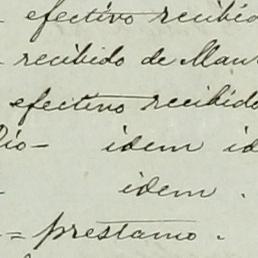 efectivo recibido
recibido de Man
efectivo recibido
io- idem id
idem.
= prestamo.